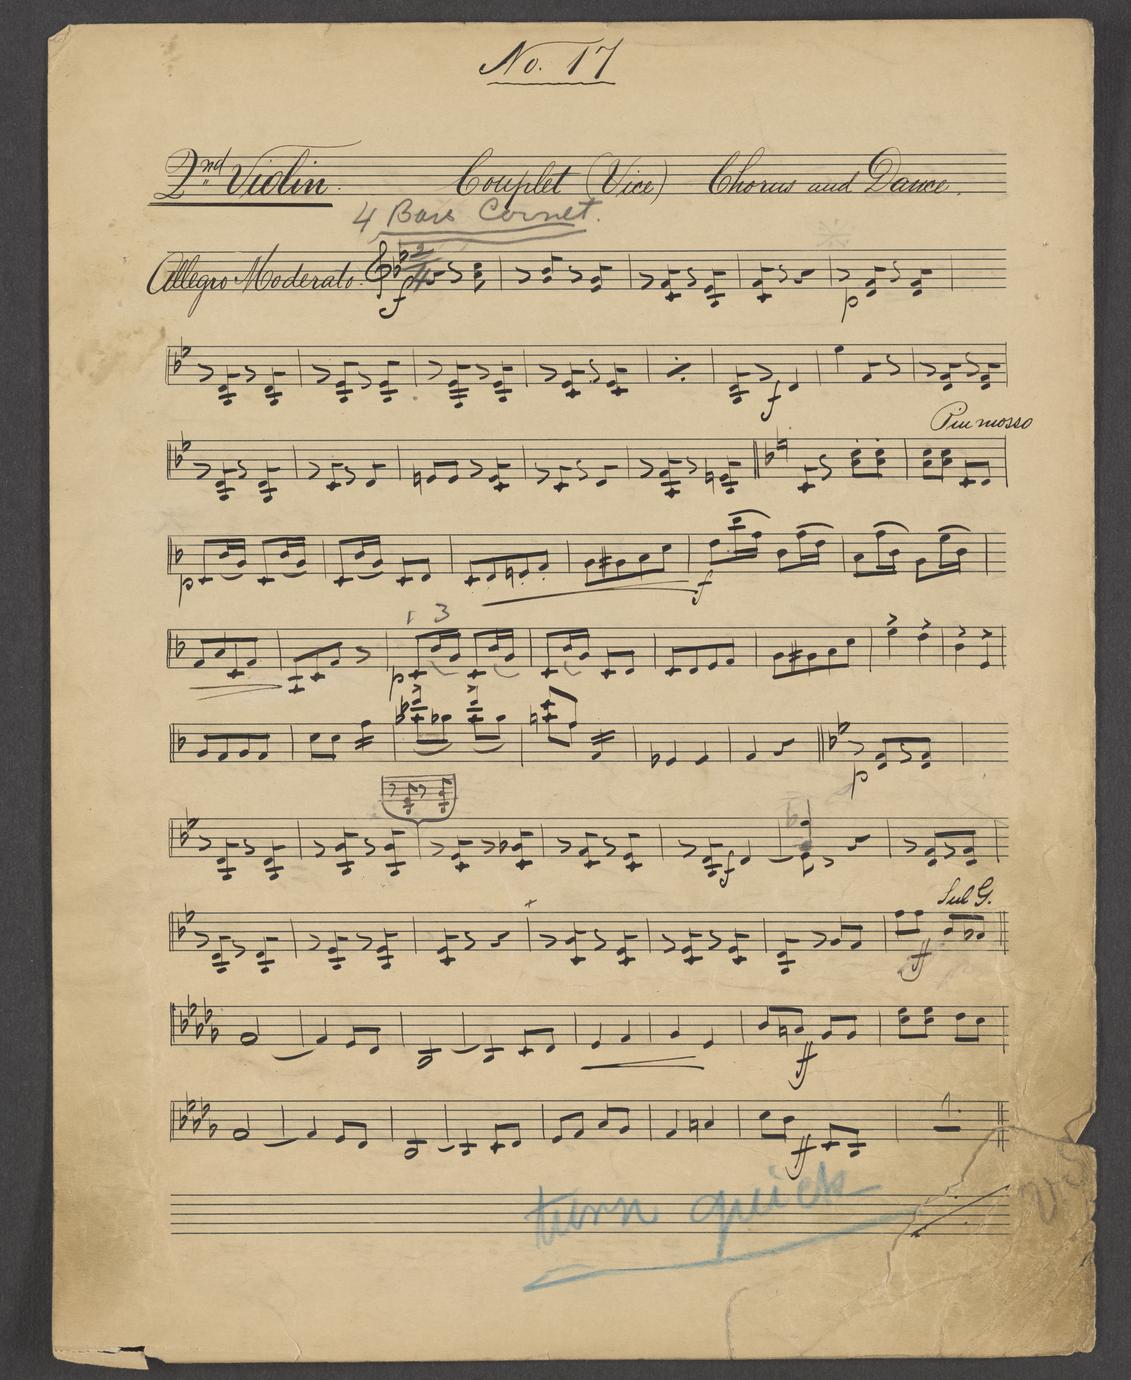 No. 17
2nd Violin. Couplet (Vice) Chorus and Dance.
4 Bars Cornet.
Allegro Moderato.
2
4
f
p
f
Piu mosso
p
f
1 3
p
p
f
Sul G.
ff
ff
1.
ff
turn quick
V.S